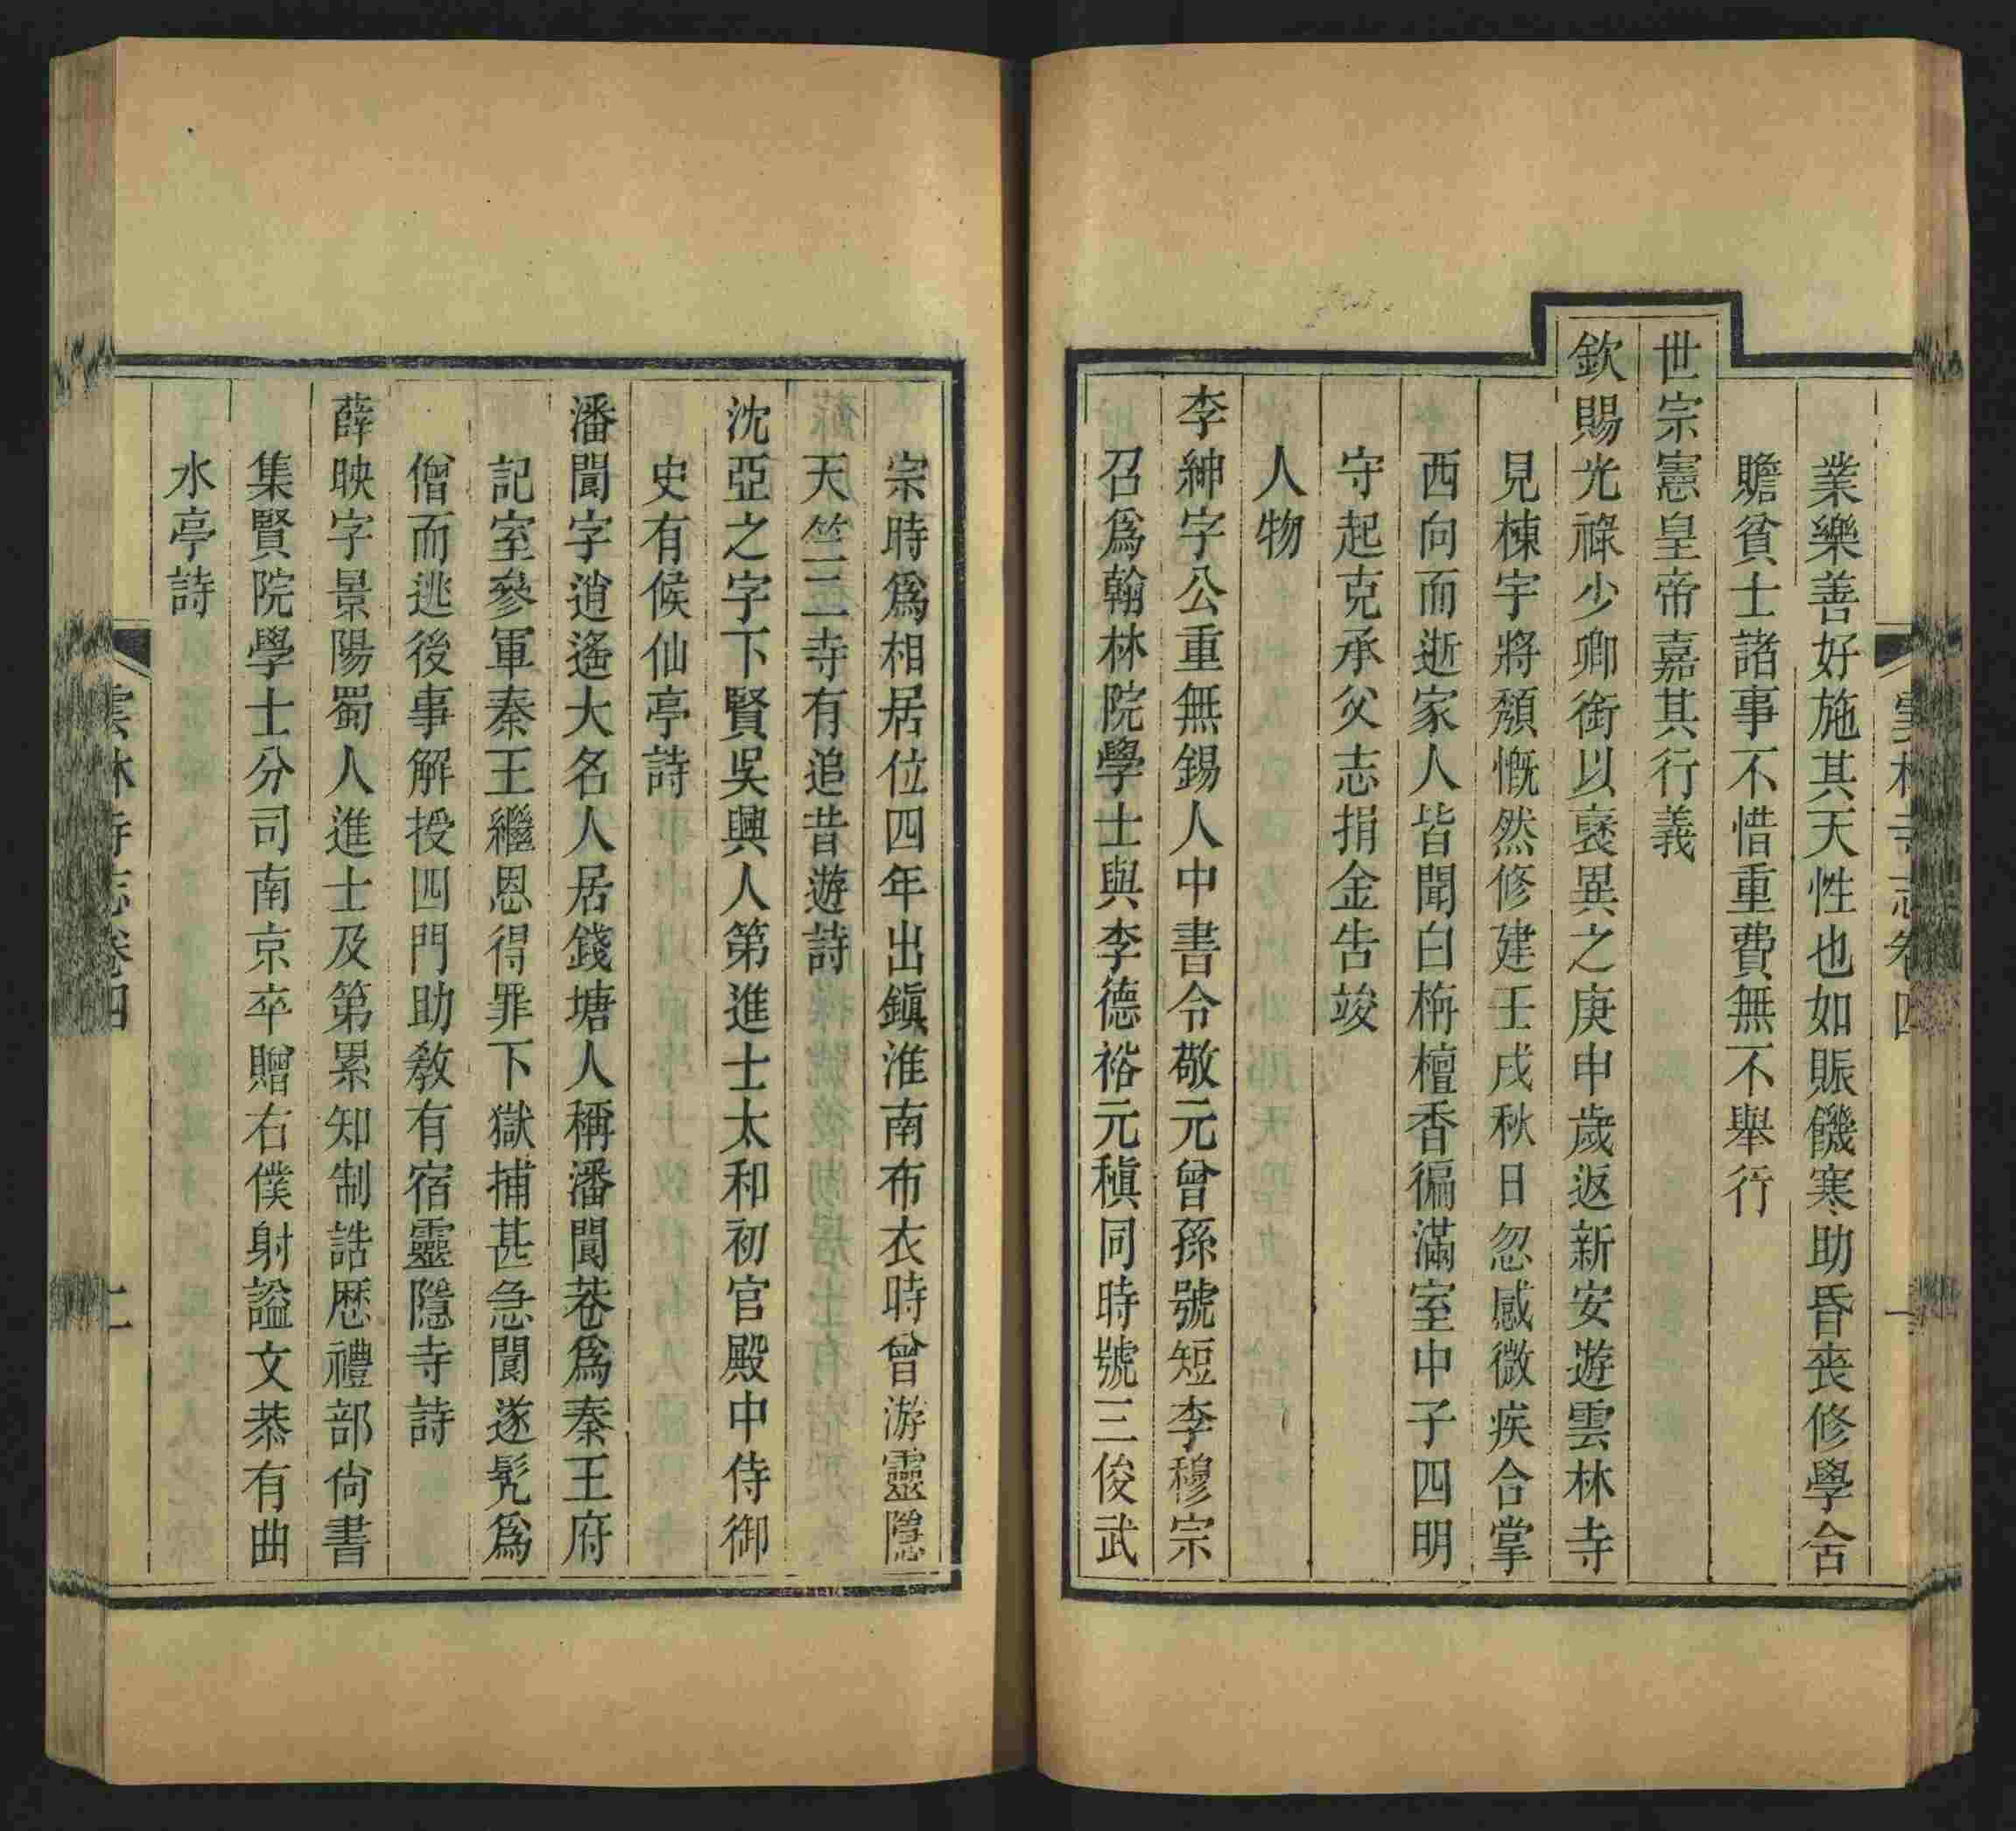 業樂善好施其天性也如賑饑寒助昏喪修學舍
贍貧士諸事不惜重費無不舉行
世宗憲皇帝嘉其行義
欽賜光祿少卿銜以襃異之庚申歲返新安遊雲林寺
見棟宇將頹慨然修建壬戌秋日忽感微疾合掌
西向而逝家人皆聞白栴檀香徧滿室中子四明
守起克承父志捐金告竣
人物
李紳字公重無錫人中書令敬元曾孫號短李穆宗
召爲翰林院學士與李德裕元稹同時號三俊武
宗時爲相居位四年出鎭淮南布衣時曾游靈隱
天竺二寺有追昔遊詩
沈亞之字下賢吳興人第進士太和初官殿中侍御
史有候仙亭詩
潘閬字逍遙大名人居錢塘人稱潘閬巷爲秦王府
記室參軍秦王繼恩得罪下獄捕甚急閬遂髠爲
僧而逃後事解授四門助敎有宿靈隱寺詩
薛映字景陽蜀人進士及第累知制誥歷禮部尙書
集賢院學士分司南京卒贈右僕射謚文恭有曲
水亭詩
雲林寺志卷四